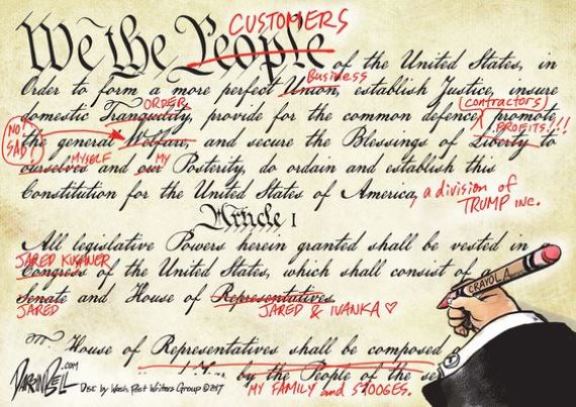 CUSTOMERS
We the People
of the United States, in
Business
Order to form a more perfect Union, establish Justice, insure
ORDER
(contractors)
domestic Tranquility, provide for the common defence, promote
NO! SAD!
PROFITS!!!
the general Welfare, and secure the Blessings of Liberty to
MYSELF
MY
ourselves and our Posterity, do ordain and establish this
Constitution for the United States of America, a division of
TRUMP INC.
Article I
All legislative Powers herein granted shall be vested in
JARED KUSHNER
Congress of the United States, which shall consist of a
Senate and House of Representatives
JARED
JARED & IVANKA ♡
CRAYOLA
House of Representatives shall be composed
by the People of the se
MY FAMILY and STOOGES.
DARRIN BELL .com
Dist. by Wash. Post Writers Group ©2017